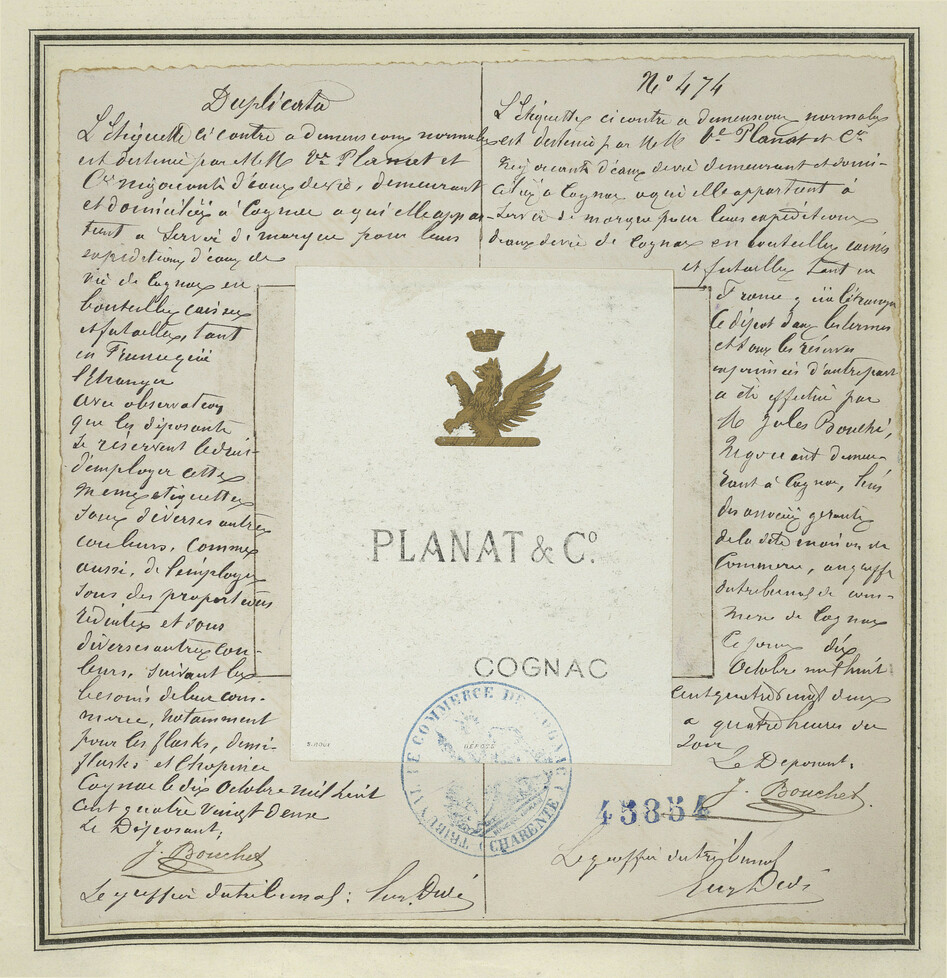 Duplicata
L'Etiquette ci contre a dimensions normales
est destinée par MM Vve Planat et
Cie négociants d'eaux de vie, demeurant
et domiciliés à Cognac a qui elle appar-
tient a servir de marque pour leurs
expéditions d'eaux de
vie de Cognac en
bouteilles caisses
et futailles, tant
en France qu'à
l'Etranger
avec observation
que les déposants
se réservent le droit
d'employer cette
meme etiquette
sous diverses autres
couleurs, comme
aussi, de l'employer
sous des proportions
réduites et sous
diverses autres cou-
leurs, suivant les
besoins de leur com-
merce, notamment
pour les flasks, demi-
flasks et Chopines
Cognac le dix Octobre mil huit
cent quatre vingt deux
Le Déposant,
J. Bouchet
Le greffier du tribunal:
N° 474
L'Etiquette ci contre a dimensions normales
est destinée par MM Vve Planat et Cie
Négociants d'eaux de vie demeurant et domi-
ciliés a Cognac a qui elle appartient à
servir de marque pour leurs expéditions
d'eaux de vie de Cognac en bouteilles caisses
et futailles tant en
France qu'à l'étranger
le dépot dans les termes
et sous les réserves
exprimées d'autre part
a été effectué par
M Jules Bouchet,
Négociant demeu-
rant à Cognac, l'un
des associés gérants
de la dite maison de
Commerce, au greffe
du tribunal de com-
merce de Cognac
Ce jour dix
Octobre mil huit
cent quatre vingt deux
a quatre heures du
soir
Le Déposant,
J. Bouchet.
Le greffier du tribunal
PLANAT & Co.
COGNAC
DÉPOSÉ
TRIBUNAL DE COMMERCE DE COGNAC (CHARENTE)
45854